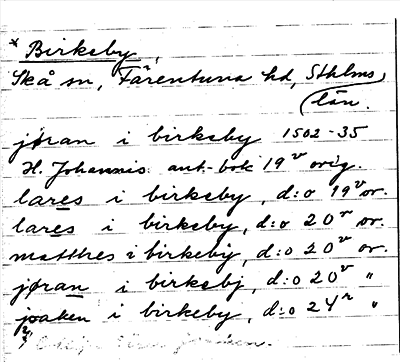 * Birkeby,
Skå sn, Färentuna hd, Sthlms
län.
jøran i birkeby 1502-35
H. Johannis ant-bok 19v orig.
lares i birkeby, d:o 19v or.
lares i birkeby, d:o 20r or.
matthes i birkeby, d:o 20v or.
jøran i birkebj, d:o 20v "
joaken i birkeby, d:o 24r "